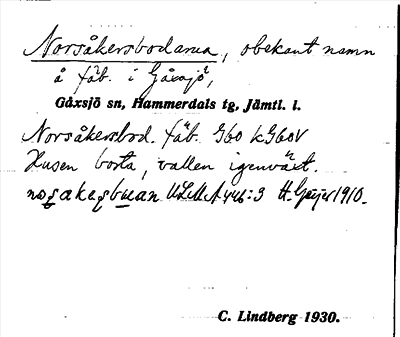 Norsåkersbodarna, obekant namn
å fäb. i Gåxsjö,
Gåxsjö sn, Hammerdals tg, Jämtl. l.
Norsåkersbod. fäb. G60 k G60V
Husen borta, vallen igenväxt.
ULMA 446:3 H. Geijer 1910.
C. Lindberg 1930.